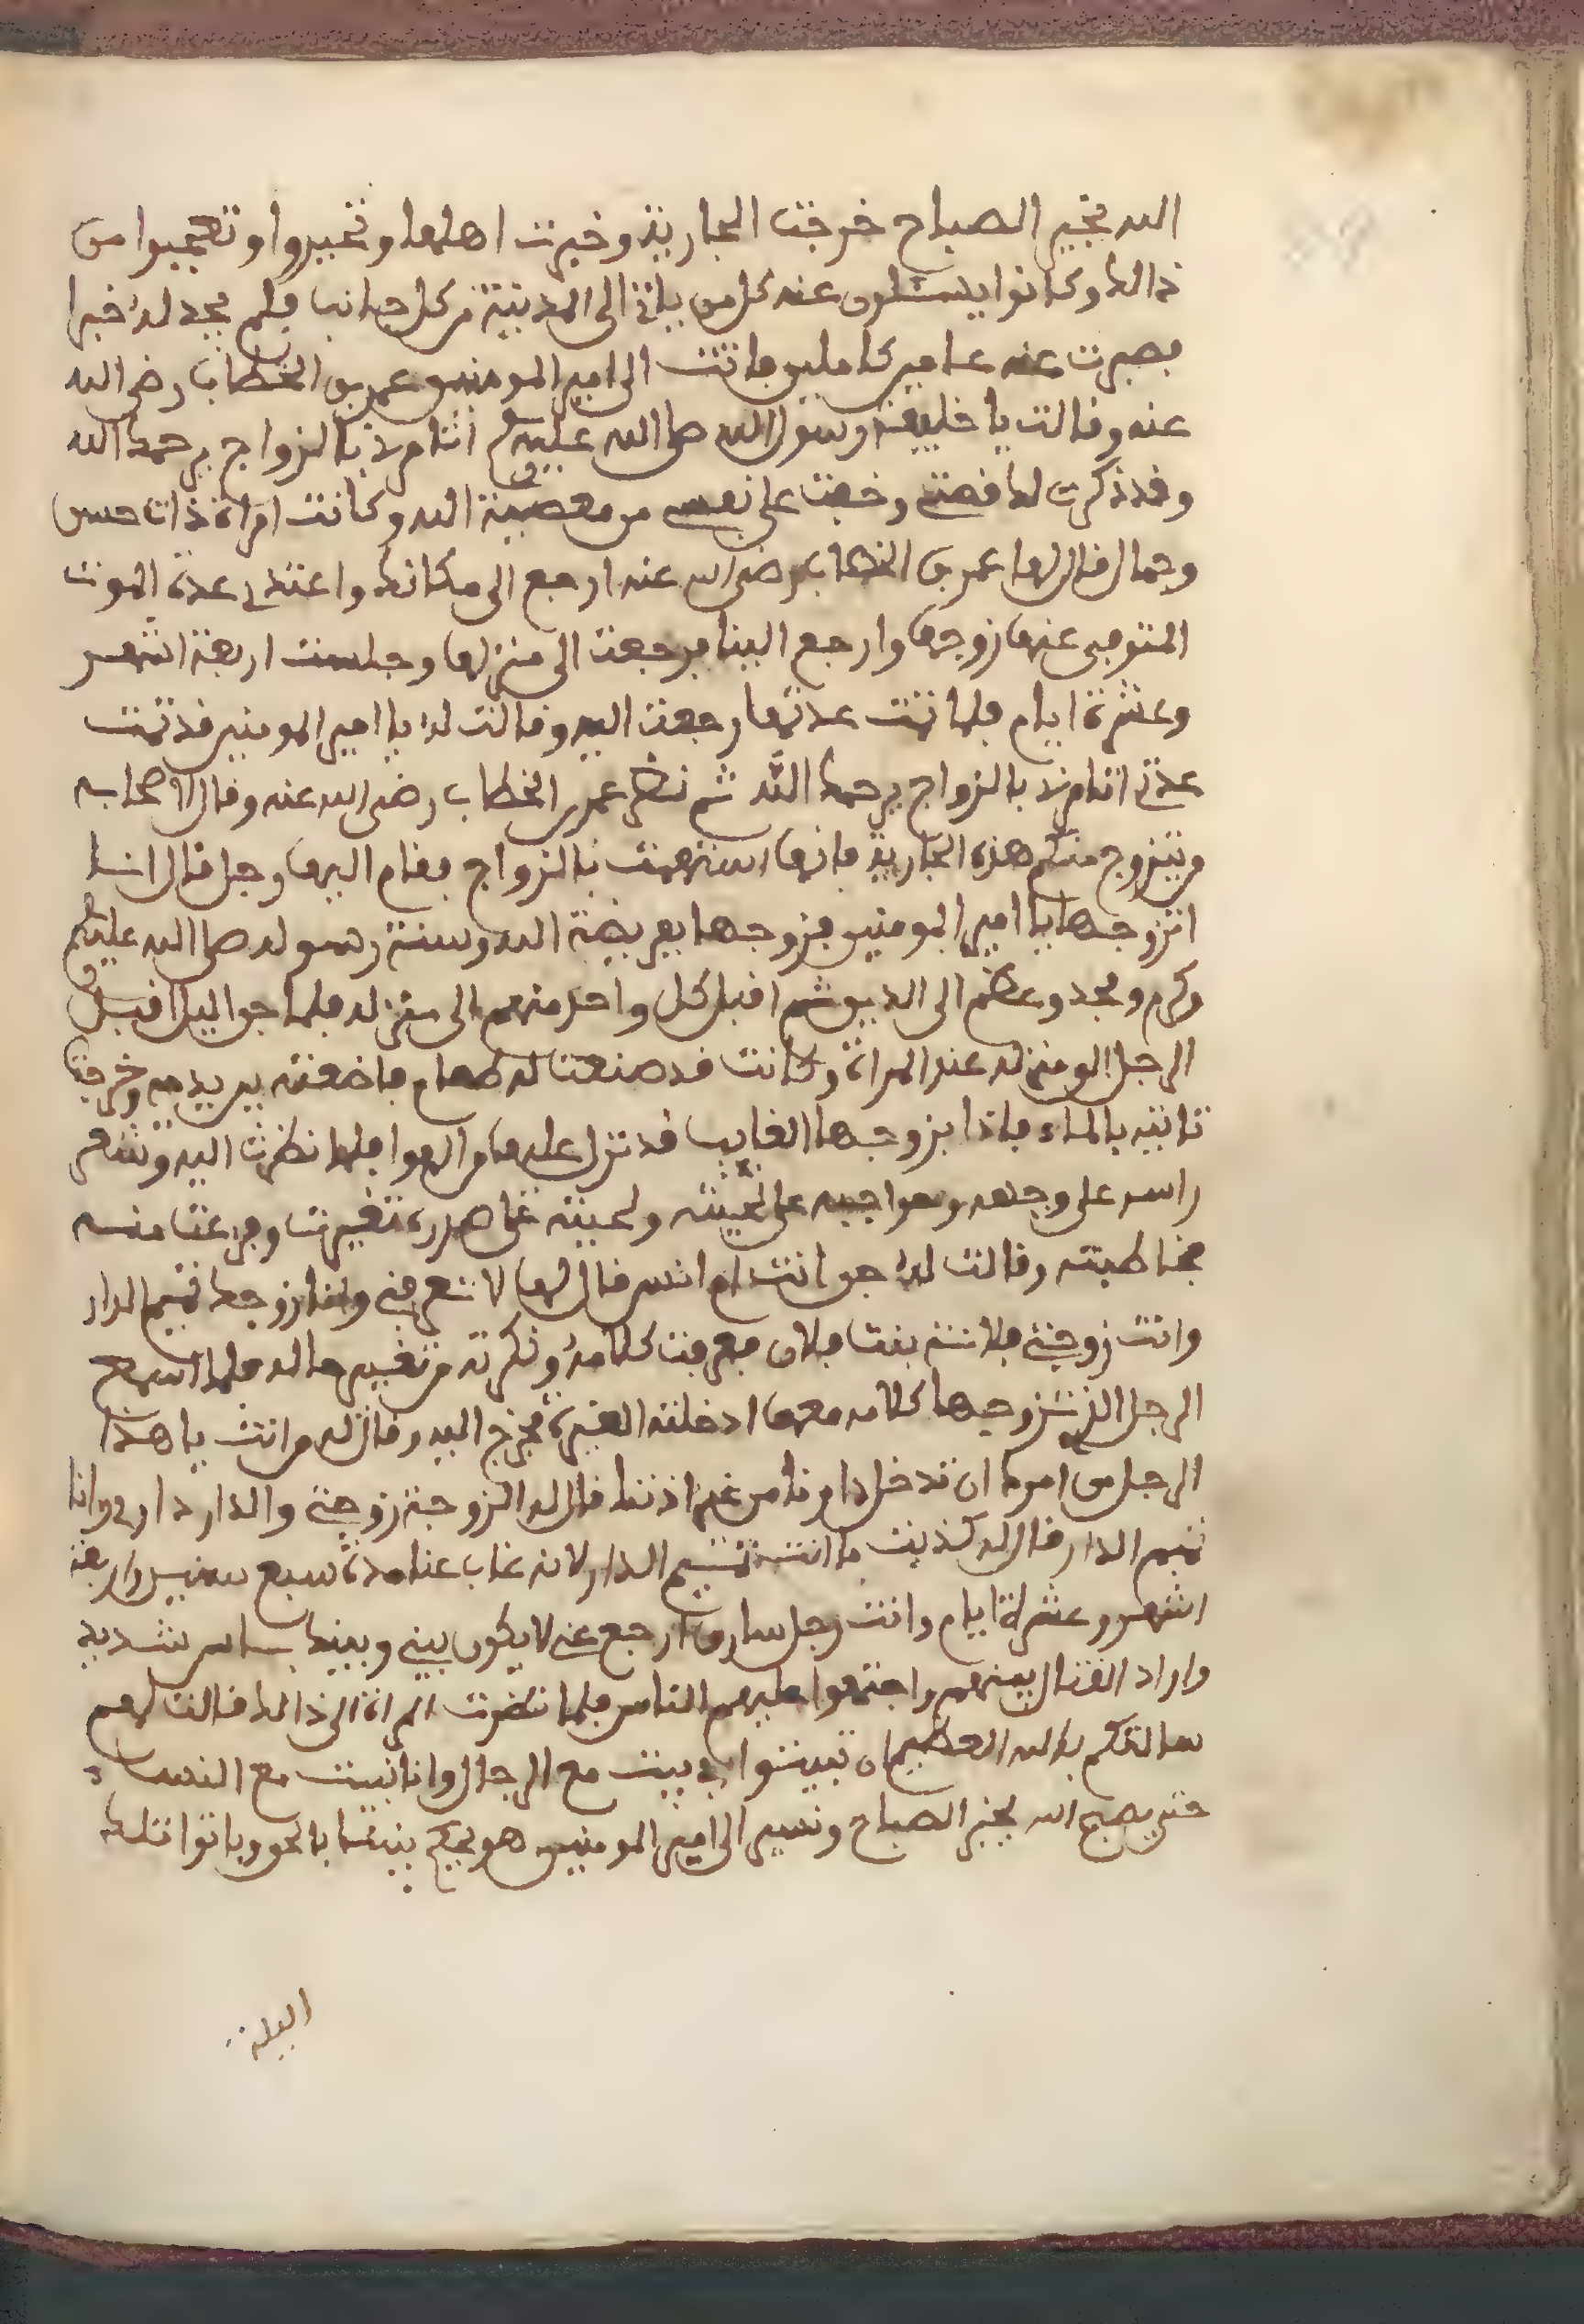 الله بخير الصباح خرجت الجارية وخبرت اهلها وتحيروا وتعجبوا من
ذالك وكانوا يسئلون عنه كل من ياتي الى المدينة من كل جانب فلم يجد له خبرا
فصبرت عنه عامين كاملين فاتت الى امير المومنين عمر بن الخطاب رضي الله
عنه وقالت يا خليفة رسول الله صلى الله عليه وسلم اتامرني بالزواج يرحمك الله
وقد ذكرت لك قصتي وخفت على نفسي من معصية الله وكانت امراة ذات حسن
وجمال فقال لها عمر بن الخطاب رضي الله عنه ارجع الى مكانك واعتدي عدة الموت
المتوفى عنها زوجها وارجع الينا فرجعت الى منزلها وجلست اربعة اشهر
وعشرة ايام فلما تمت عدتها رجعت اليه وقالت له يا امير المومنين قد تمت
عدتي اتامرني بالزواج يرحمك الله ثم نظر عمر بن الخطاب رضي الله عنه وقال لاصحابه
من يتزوج منكم هذه الجارية فانها استهمت بالزواج فقام اليها رجل فقال انا
اتزوجها يا امير المومنين فزوجها بفريضة الله وسنة رسوله صلى الله عليه وسلم
وكرم ومجد وعظم الى الدين ثم اقبل كل واحد منهم الى منزله فلما جن اليل اقبل
الرجل الى منزله عند المراة وكانت قد صنعت له طعام فاضعته بين يديه وخرجت
تاتيه بالماء فاذا بزوجها الغايب قد نزل عليها من الهوا فلما نظرت اليه وشعر
راسه على وجهه وحواجبه على لحيته ولحيته على صدره تغيرت وفزعت منه
فخاطبته وقالت له اجن انت ام انس فقال لها لا تعرفني وانا زوجك تميم الدار
وانت زوجتي فلانة بنت فلان فعرفت كلامه ونكرته من تغيير حاله فلما اسمع
الرجل الذي تزوجها كلامه معها ادخلته الغيرة فخرج اليه وقال له من انت يا هذا
الرجل من امرك ان تدخل دارنا من غير اذننا قال له الزوجة زوجتي والدار داري وانا
تميم الدار فقال له كذبت ما انت تميم الدار لانه غاب عنا مدة سبع سنين واربعة
اشهر وعشرة ايام وانت رجل سارق ارجع عني لا يكون بيني وبينك باس شديد
واراد القتال بينهم واجتمعوا عليهم الناس فلما نظرت المراة الى ذالك فقالت لهم
سالتكم بالله العظيم ان تبيتوا في بيت مع الرجال وانا نبيت مع النساء
حتى يصبح الله بخير الصباح ونسير الى امير المومنين هو يحكم بيننا بالحق وباتوا تلك
اليلة